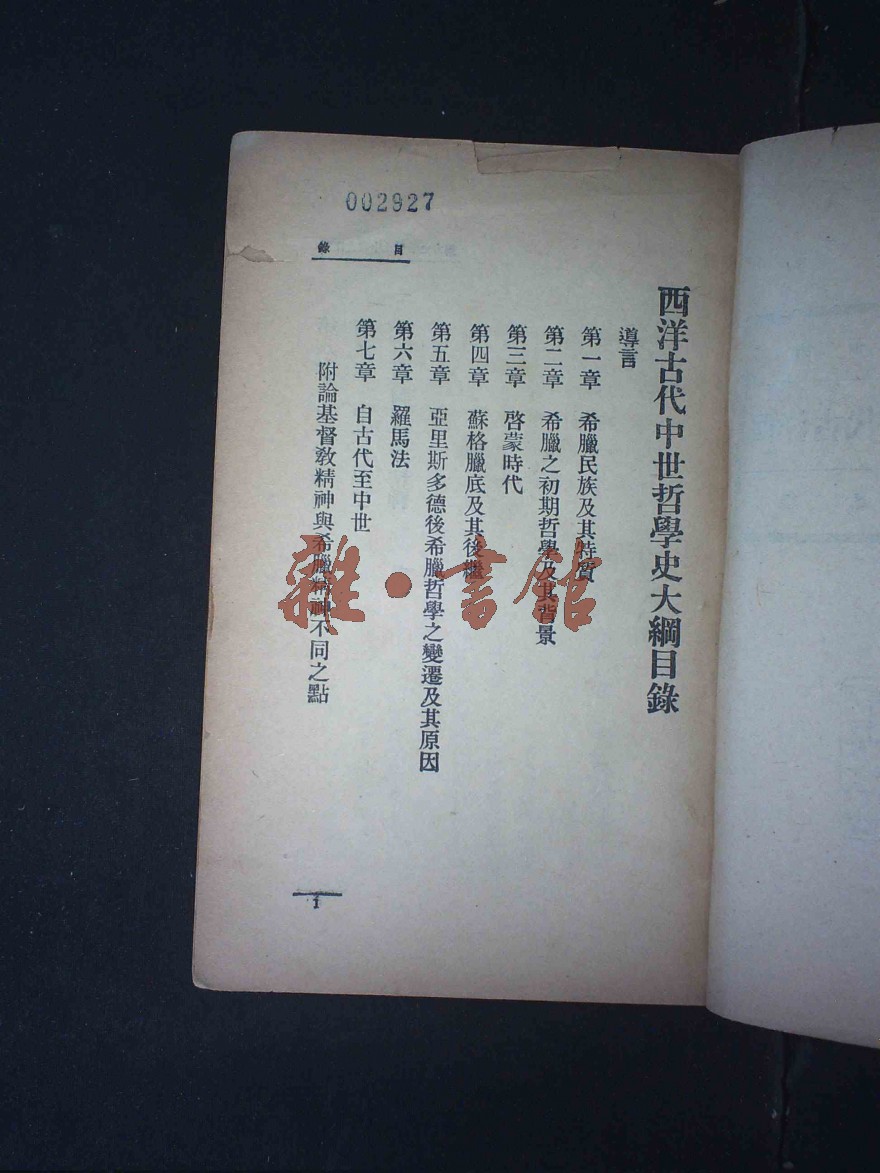 002927
目錄
西洋古代中世哲學史大綱目錄
導言
第一章 希臘民族及其特質
第二章 希臘之初期哲學及其背景
第三章 啓蒙時代
第四章 蘇格臘底及其後繼
第五章 亞里斯多德後希臘哲學之變遷及其原因
第六章 羅馬法
第七章 自古代至中世
附論基督敎精神與希臘精神不同之點
1
雜·書館